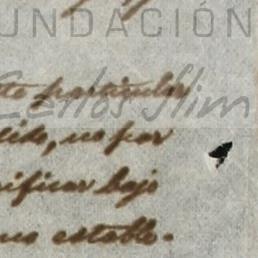 FUNDACIÓN
Carlos Slim
to particular
dido, no por
ificar bajo
establo-